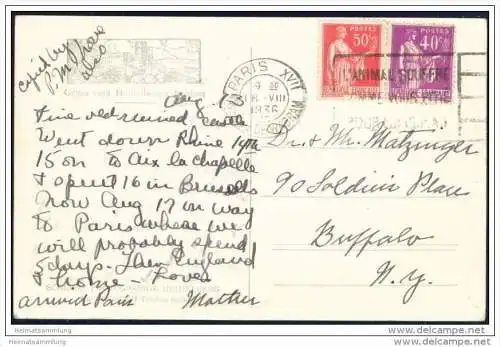 copied by
also
Gruss vom Heidelberger Schloss
Aug 13
Fine old ruined castle
Went down Rhine 14th
15 on to Aix la chapelle
& spent 16 in Brussels
Now Aug 17 on way
to Paris where we
will probably spend
5 days. Then England
& home - Love
arrived Paris Mother
PARIS XVII
18 VIII
1936
POSTES
50c
POSTES
40c
L'ANIMAL SOUFFRE
Dr. & Mr. Matzinger
90 Soldiers Place
Buffalo
N.Y.
Heimatsammlung
Heimatsammlung.de
Heimatsammlung
Heimatsammlung.de